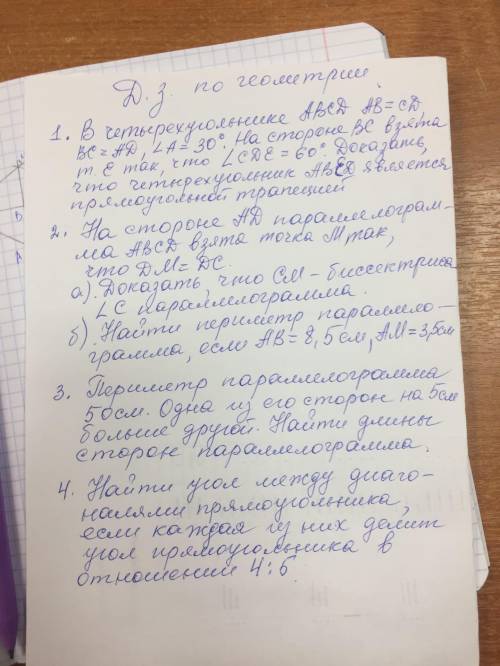 Д.з. по геометрии.
1. В четырехугольнике ABCD AB=CD,
BC=AD, ∠A=30°. На стороне BC взята
т. E так, что ∠CDE=60°. Доказать,
что четырехугольник ABED является
прямоугольной трапецией
2. На стороне AD параллелограм-
ма ABCD взята точка M так,
что DM=DC.
а). Доказать, что CM - биссектриса
∠C параллелограмма.
б). Найти периметр параллело-
грамма, если AB=8,5см, AM=3,5см
3. Периметр параллелограмма
50см. Одна из его сторон на 5см
больше другой. Найти длины
сторон параллелограмма.
4. Найти угол между диаго-
налями прямоугольника,
если каждая из них делит
угол прямоугольника в
отношении 4:5
В
А